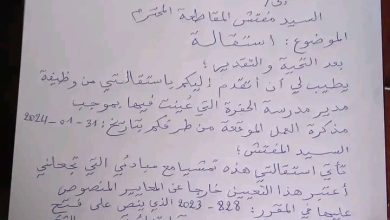 إلى /
السيد مفتش المقاطعة المحترم
الموضوع : استقالة
بعد التحية والتقدير ؛
يطيب لي أن أتقدم إليكم باستقالتي من وظيفة
مدير مدرسة الحفرة التي عُينت فيها بموجب
مذكرة العمل الموقعة من طرفكم بتاريخ : 31-01-2024
السيد المفتش ؛
تأتي استقالتي هذه تمشيا مع مبادئي التي تجعلني
أعتبر هذا التعيين خارجا عن المعايير المنصوص
عليها في المقرر : 828 - 2023 الذي ينص على فتح